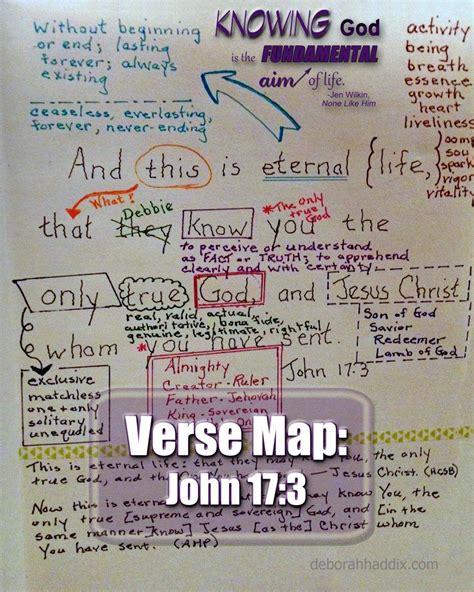 KNOWING God
is the FUNDAMENTAL
aim of life.
-Jen Wilkin,
None Like Him
Without beginning
or end; lasting
forever; always
existing
ceaseless, everlasting,
forever, never-ending
activity
being
breath
essence
growth
heart
liveliness
oomp
sou
spark
vigor
vitality
And this is eternal life,
What?
Debbie
*The only
true God
that they know you the
to perceive or understand
as FACT or TRUTH; to apprehend
clearly and with certainty
only true God, and Jesus Christ
real, valid, actual,
authoritative, bona fide,
genuine, legitimate, rightful
Son of God
Savior
Redeemer
Lamb of God
whom *you have sent.
John 17:3
exclusive
matchless
one + only
solitary
unequaled
Almighty
Creator - Ruler
Father - Jehovah
King - Sovereign
Verse Map:
John 17:3
This is eternal life: that they may you, the only
true God, and the Jesus Christ. (HCSB)
Now this is eternal may know You, the
only true [supreme and sovereign] God, and [in the
same manner know] Jesus [as the] Christ whom
You have sent. (AMP)
deborahhaddix.com